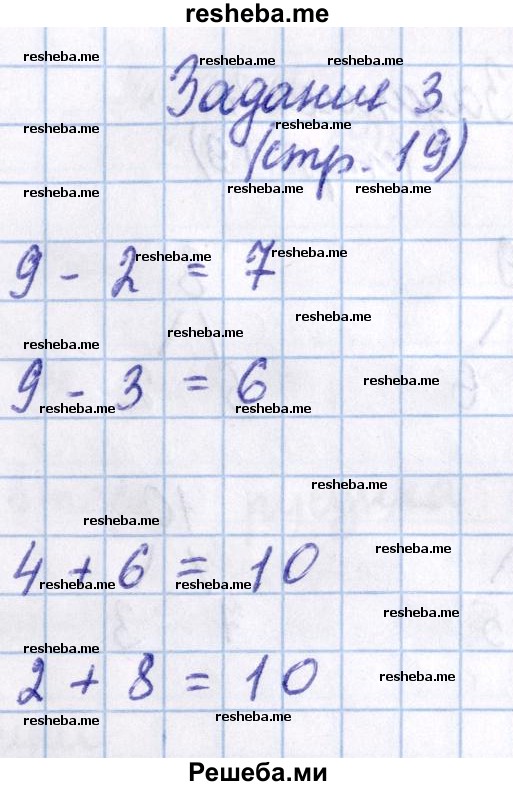 resheba.me
resheba.me resheba.me resheba.me
Задание 3
resheba.me resheba.me
(стр. 19)
resheba.me resheba.me resheba.me
resheba.me resheba.me
9 - 2 = 7
resheba.me
resheba.me resheba.me
9 - 3 = 6
resheba.me
resheba.me resheba.me
resheba.me
resheba.me
resheba.me
4 + 6 = 10
resheba.me resheba.me
resheba.me
resheba.me
2 + 8 = 10
resheba.me
resheba.me resheba.me
Решеба.ми